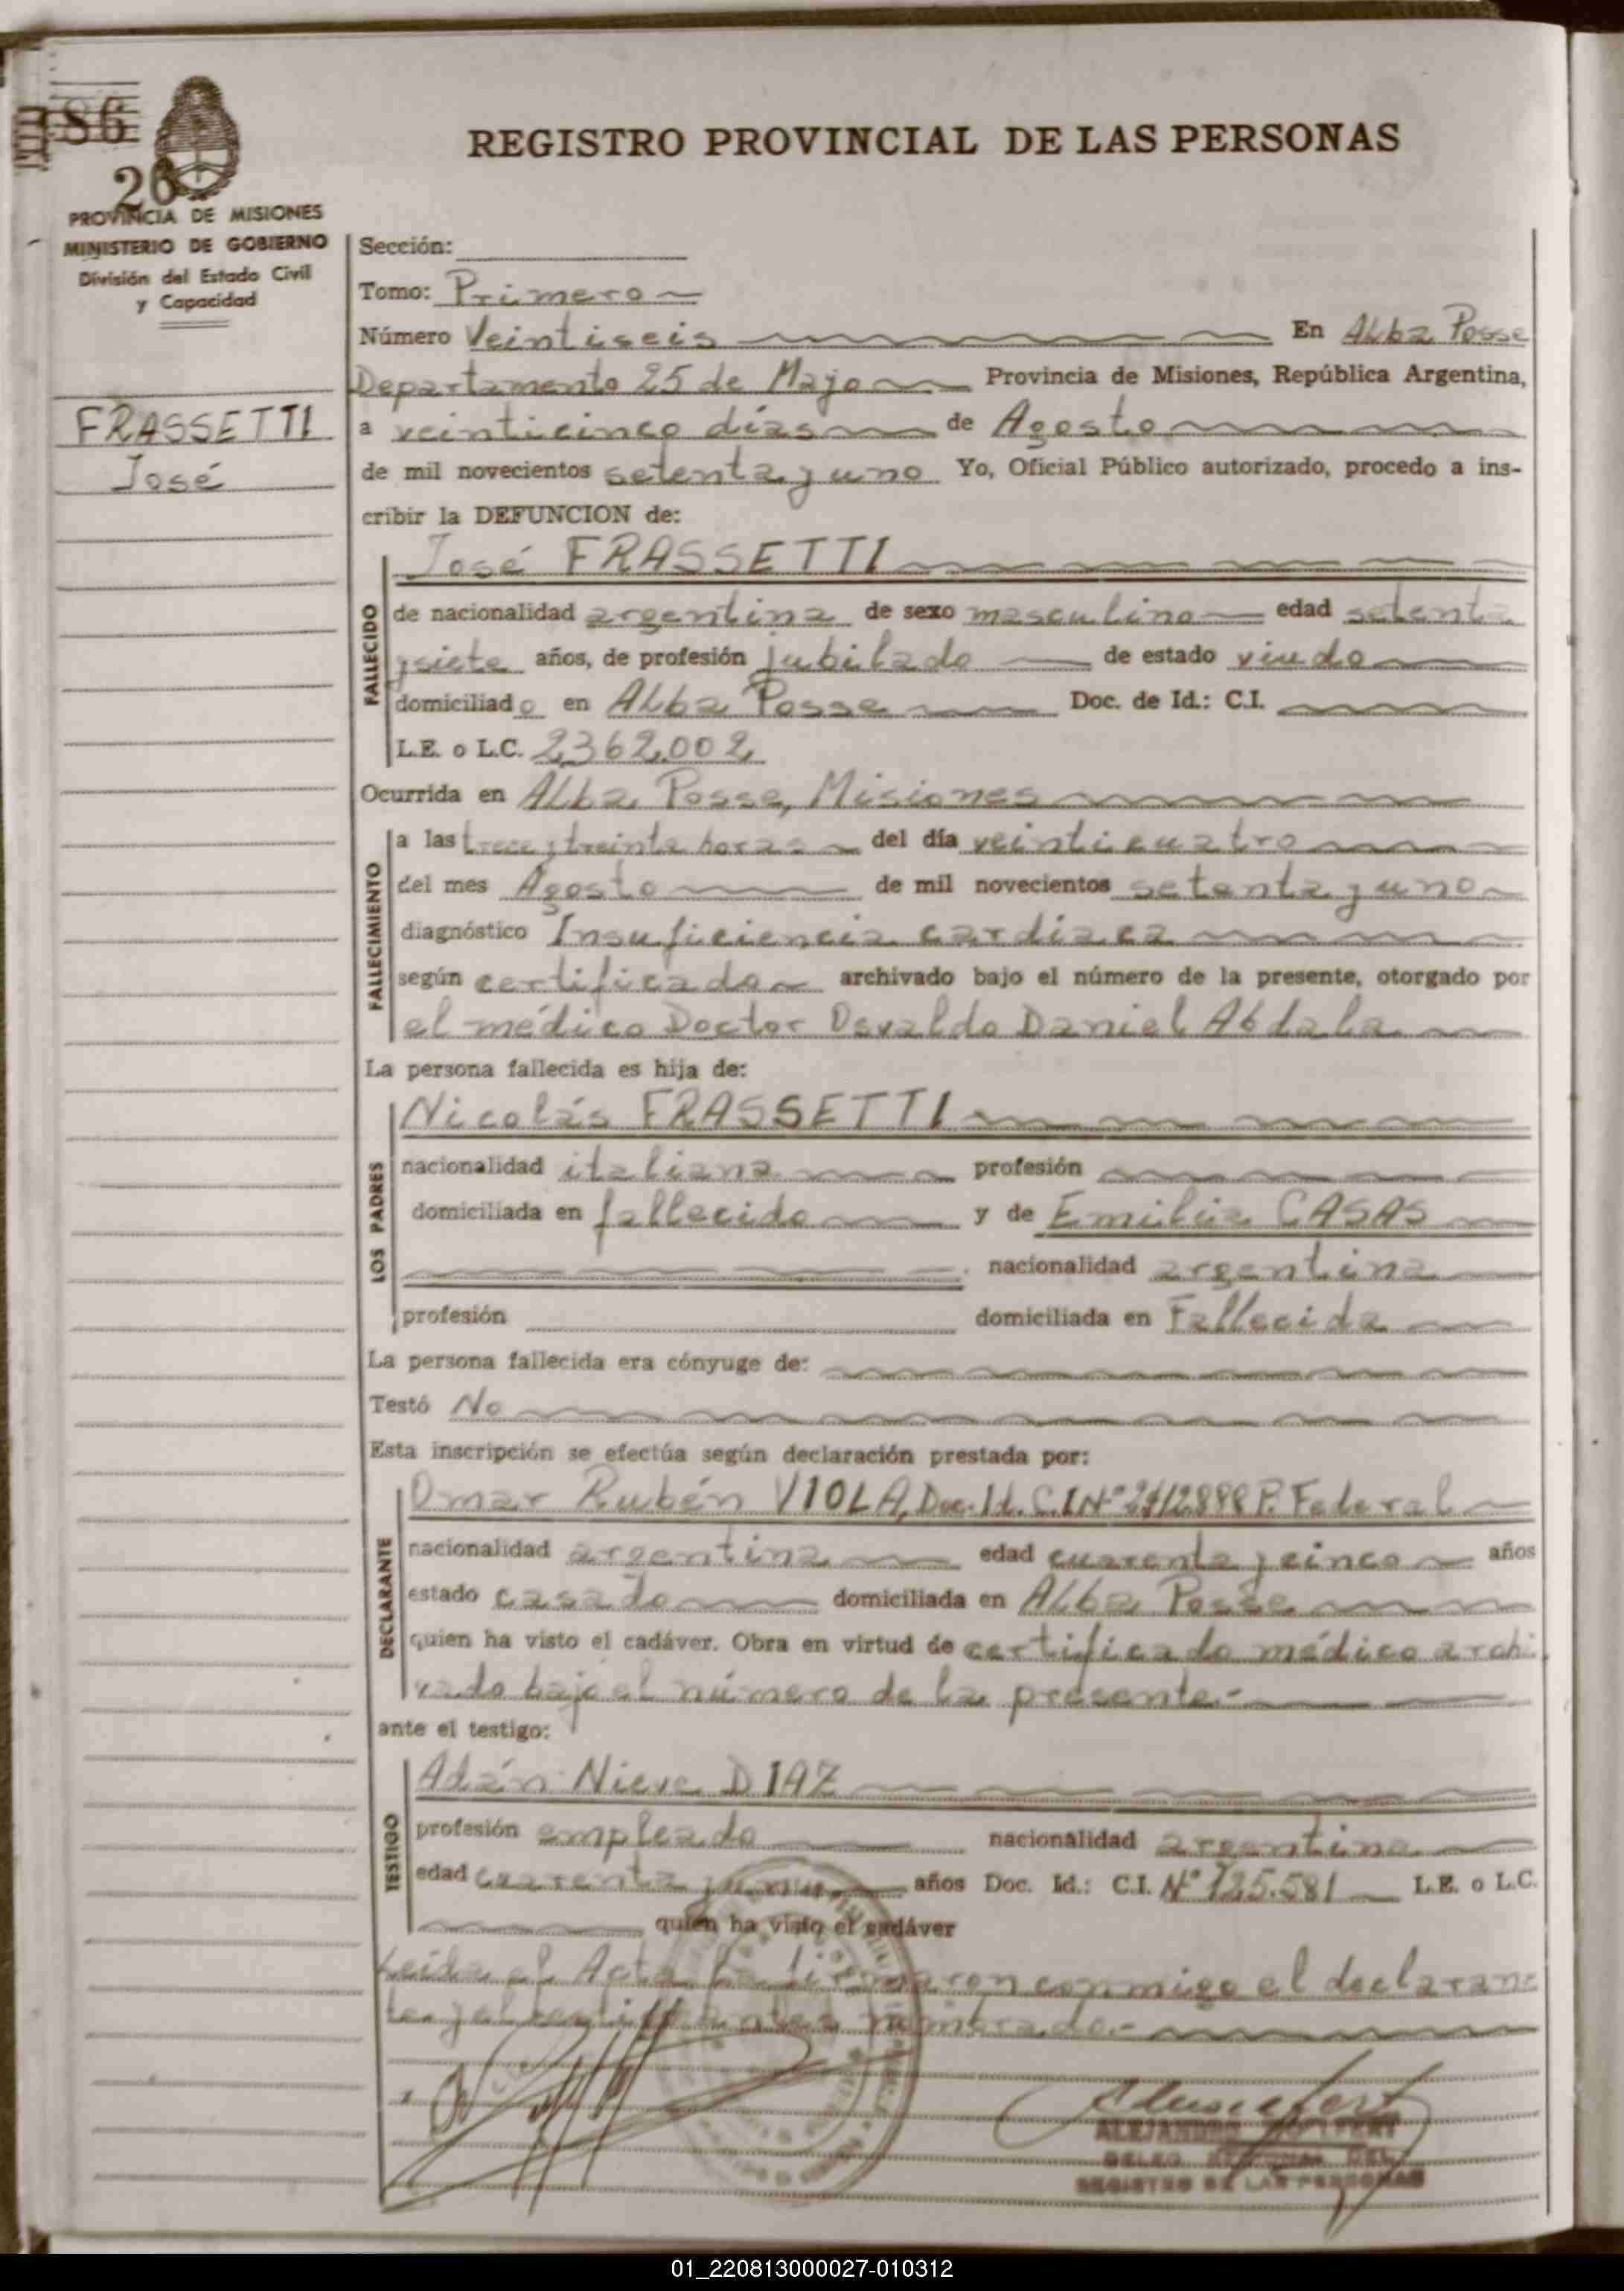 86
26
REGISTRO PROVINCIAL DE LAS PERSONAS
PROVINCIA DE MISIONES
MINISTERIO DE GOBIERNO
División del Estado Civil
y Capacidad
FRASSETTI
José
Sección:
Tomo: Primero
Número Veintiseis En Alba Posse
Departamento 25 de Mayo Provincia de Misiones, República Argentina,
a veinticinco días de Agosto
de mil novecientos setenta y uno Yo, Oficial Público autorizado, procedo a ins-
cribir la DEFUNCION de:
FALLECIDO
José FRASSETTI
de nacionalidad argentina de sexo masculino edad setenta
y siete años, de profesión jubilado de estado viudo
domiciliado en Alba Posse Doc. de Id.: C.I.
L.E. o L.C. 2362.002
Ocurrida en Alba Posse, Misiones
FALLECIMIENTO
a las trece y treinta horas del día veinticuatro
del mes Agosto de mil novecientos setenta y uno
diagnóstico Insuficiencia cardiaca
según certificado archivado bajo el número de la presente, otorgado por
el médico Doctor Osvaldo Daniel Abdala
La persona fallecida es hija de:
LOS PADRES
Nicolás FRASSETTI
nacionalidad italiana profesión
domiciliada en fallecido y de Emilia CASAS
nacionalidad argentina
profesión domiciliada en Fallecida
La persona fallecida era cónyuge de:
Testó No
Esta inscripción se efectúa según declaración prestada por:
DECLARANTE
Omar Rubén VIOLA, Doc. Id. C.I. N° P. Federal
nacionalidad argentina edad cuarenta y cinco años
estado casado domiciliada en Alba Posse
quien ha visto el cadáver. Obra en virtud de certificado médico archi
vado bajo el número de la presente.-
ante el testigo:
TESTIGO
Adán Nieve DIAZ
profesión empleado nacionalidad argentina
edad cuarenta y años Doc. Id.: C.I. N° 125.581 L.E. o L.C.
quien ha visto el cadáver
Leída el Acta la firmaron conmigo el declaran
te y el testigo antes nombrado.-
ALEJANDRO
REGISTRO DE LAS PERSONAS
01_220813000027-010312